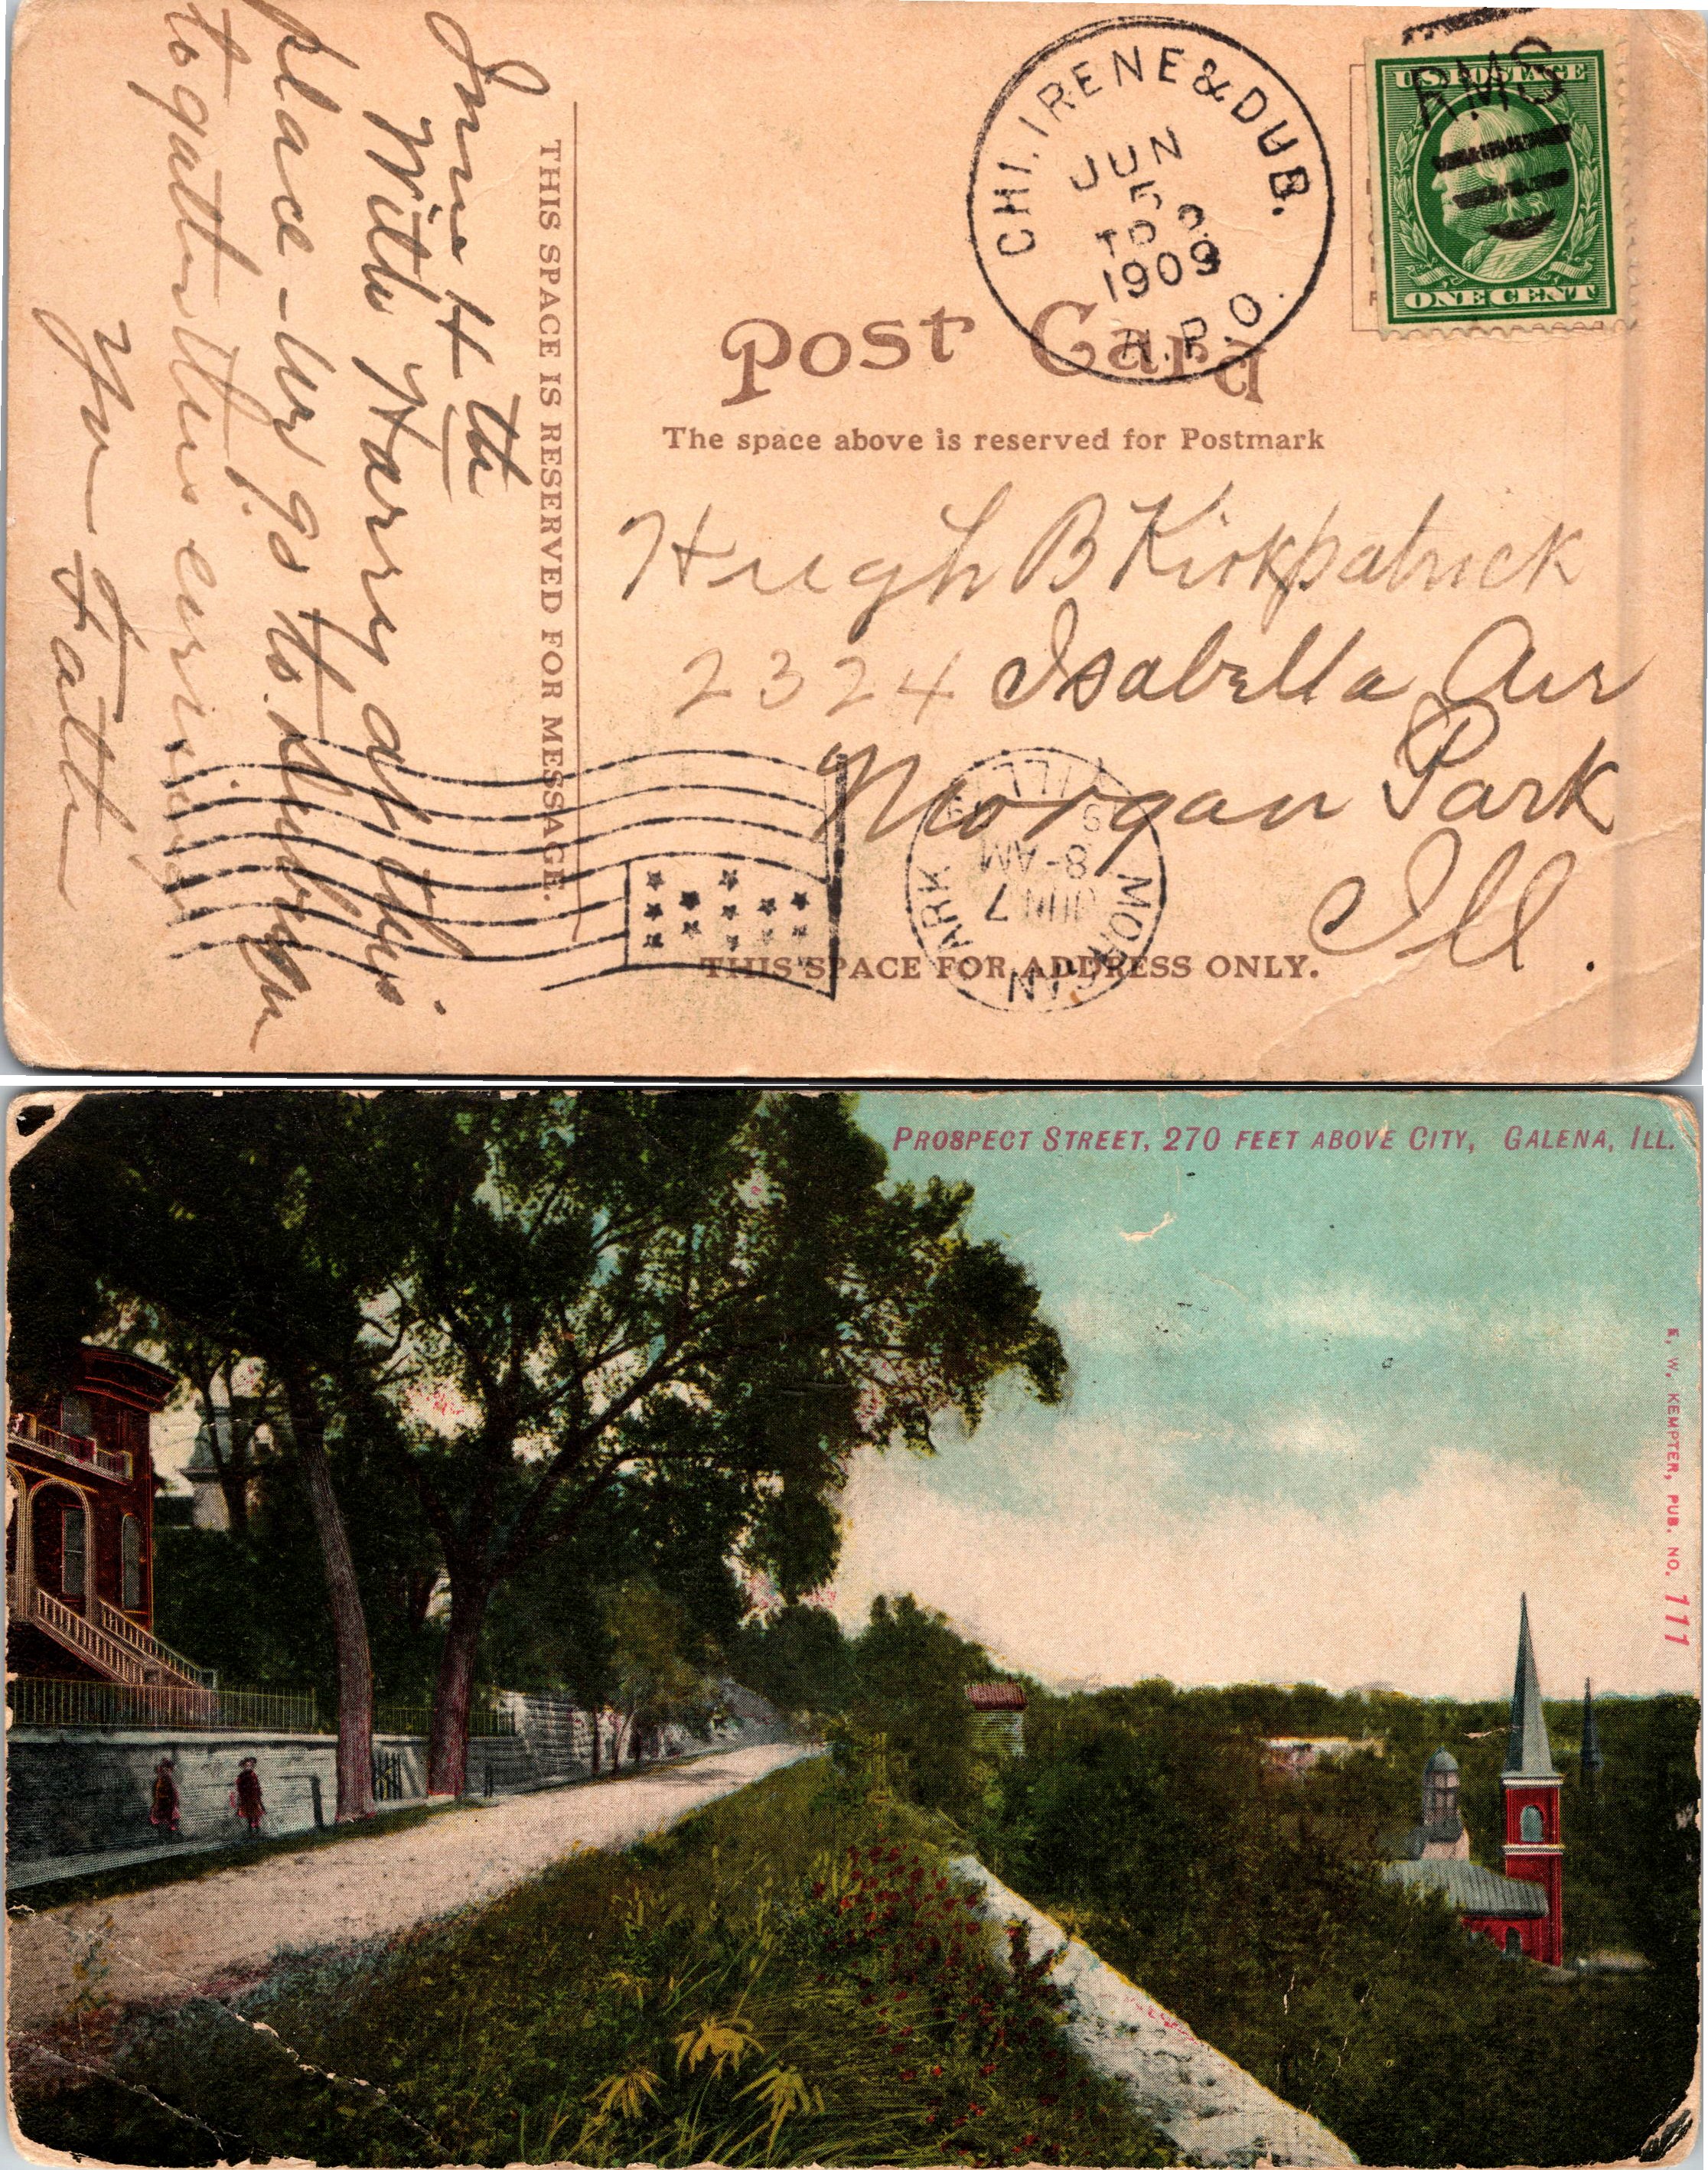 THIS SPACE IS RESERVED FOR MESSAGE.
June 4 th
With Harry at this
place - We go to Dubuque
together this evening
Your Father
CHI. IRENE & DUB.
JUN
5
1909
R.P.O.
RMS
U.S. POSTAGE
ONE CENT
Post Card
The space above is reserved for Postmark
Hugh B Kirkpatrick
2324 Isabella Ave
Morgan Park
Ill.
MORGAN PARK ILL
JUN 7
8-AM
THIS SPACE FOR ADDRESS ONLY.
PROSPECT STREET, 270 FEET ABOVE CITY, GALENA, ILL.
E. W. KEMPTER, PUB. NO. 111